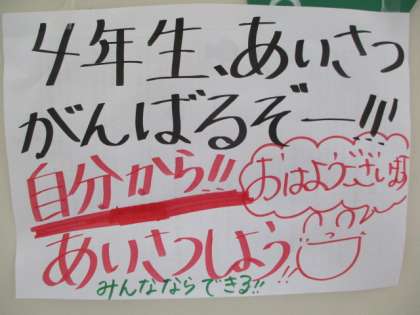 4年生、あいさつ
がんばるぞー!!!
自分から!!
おはようございます
あいさつしよう!!
みんなならできる!!